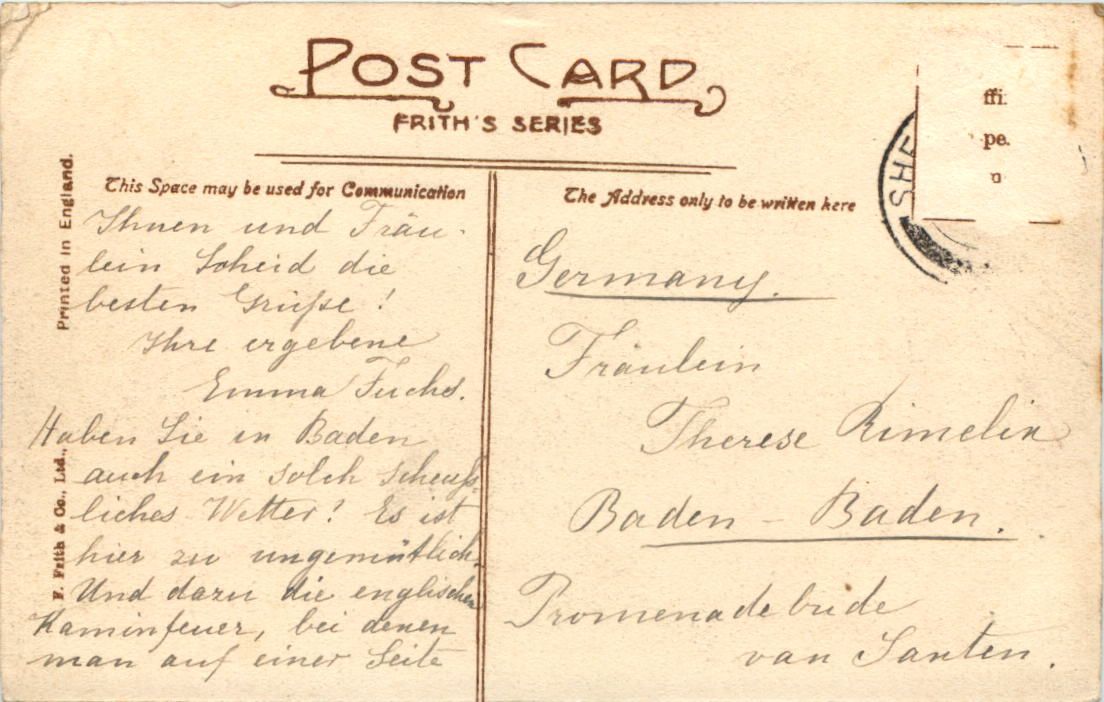 POST CARD
FRITH'S SERIES
Printed in England.
F. Frith & Co., Ltd.,
This Space may be used for Communication
Ihnen und Fräu-
lein Scheid die
besten Grüße!
Ihre ergebene
Emma Fuchs.
Haben Sie in Baden
auch ein solch scheuß-
liches Wetter! Es ist
hier zu ungemütlich.
Und dazu die englischen
Kaminfeuer, bei denen
man auf einer Seite
The Address only to be written here
SHE
ffi
pe.
Germany.
Fräulein
Therese Rimelin
Baden-Baden.
Promenadebude
van Santen.